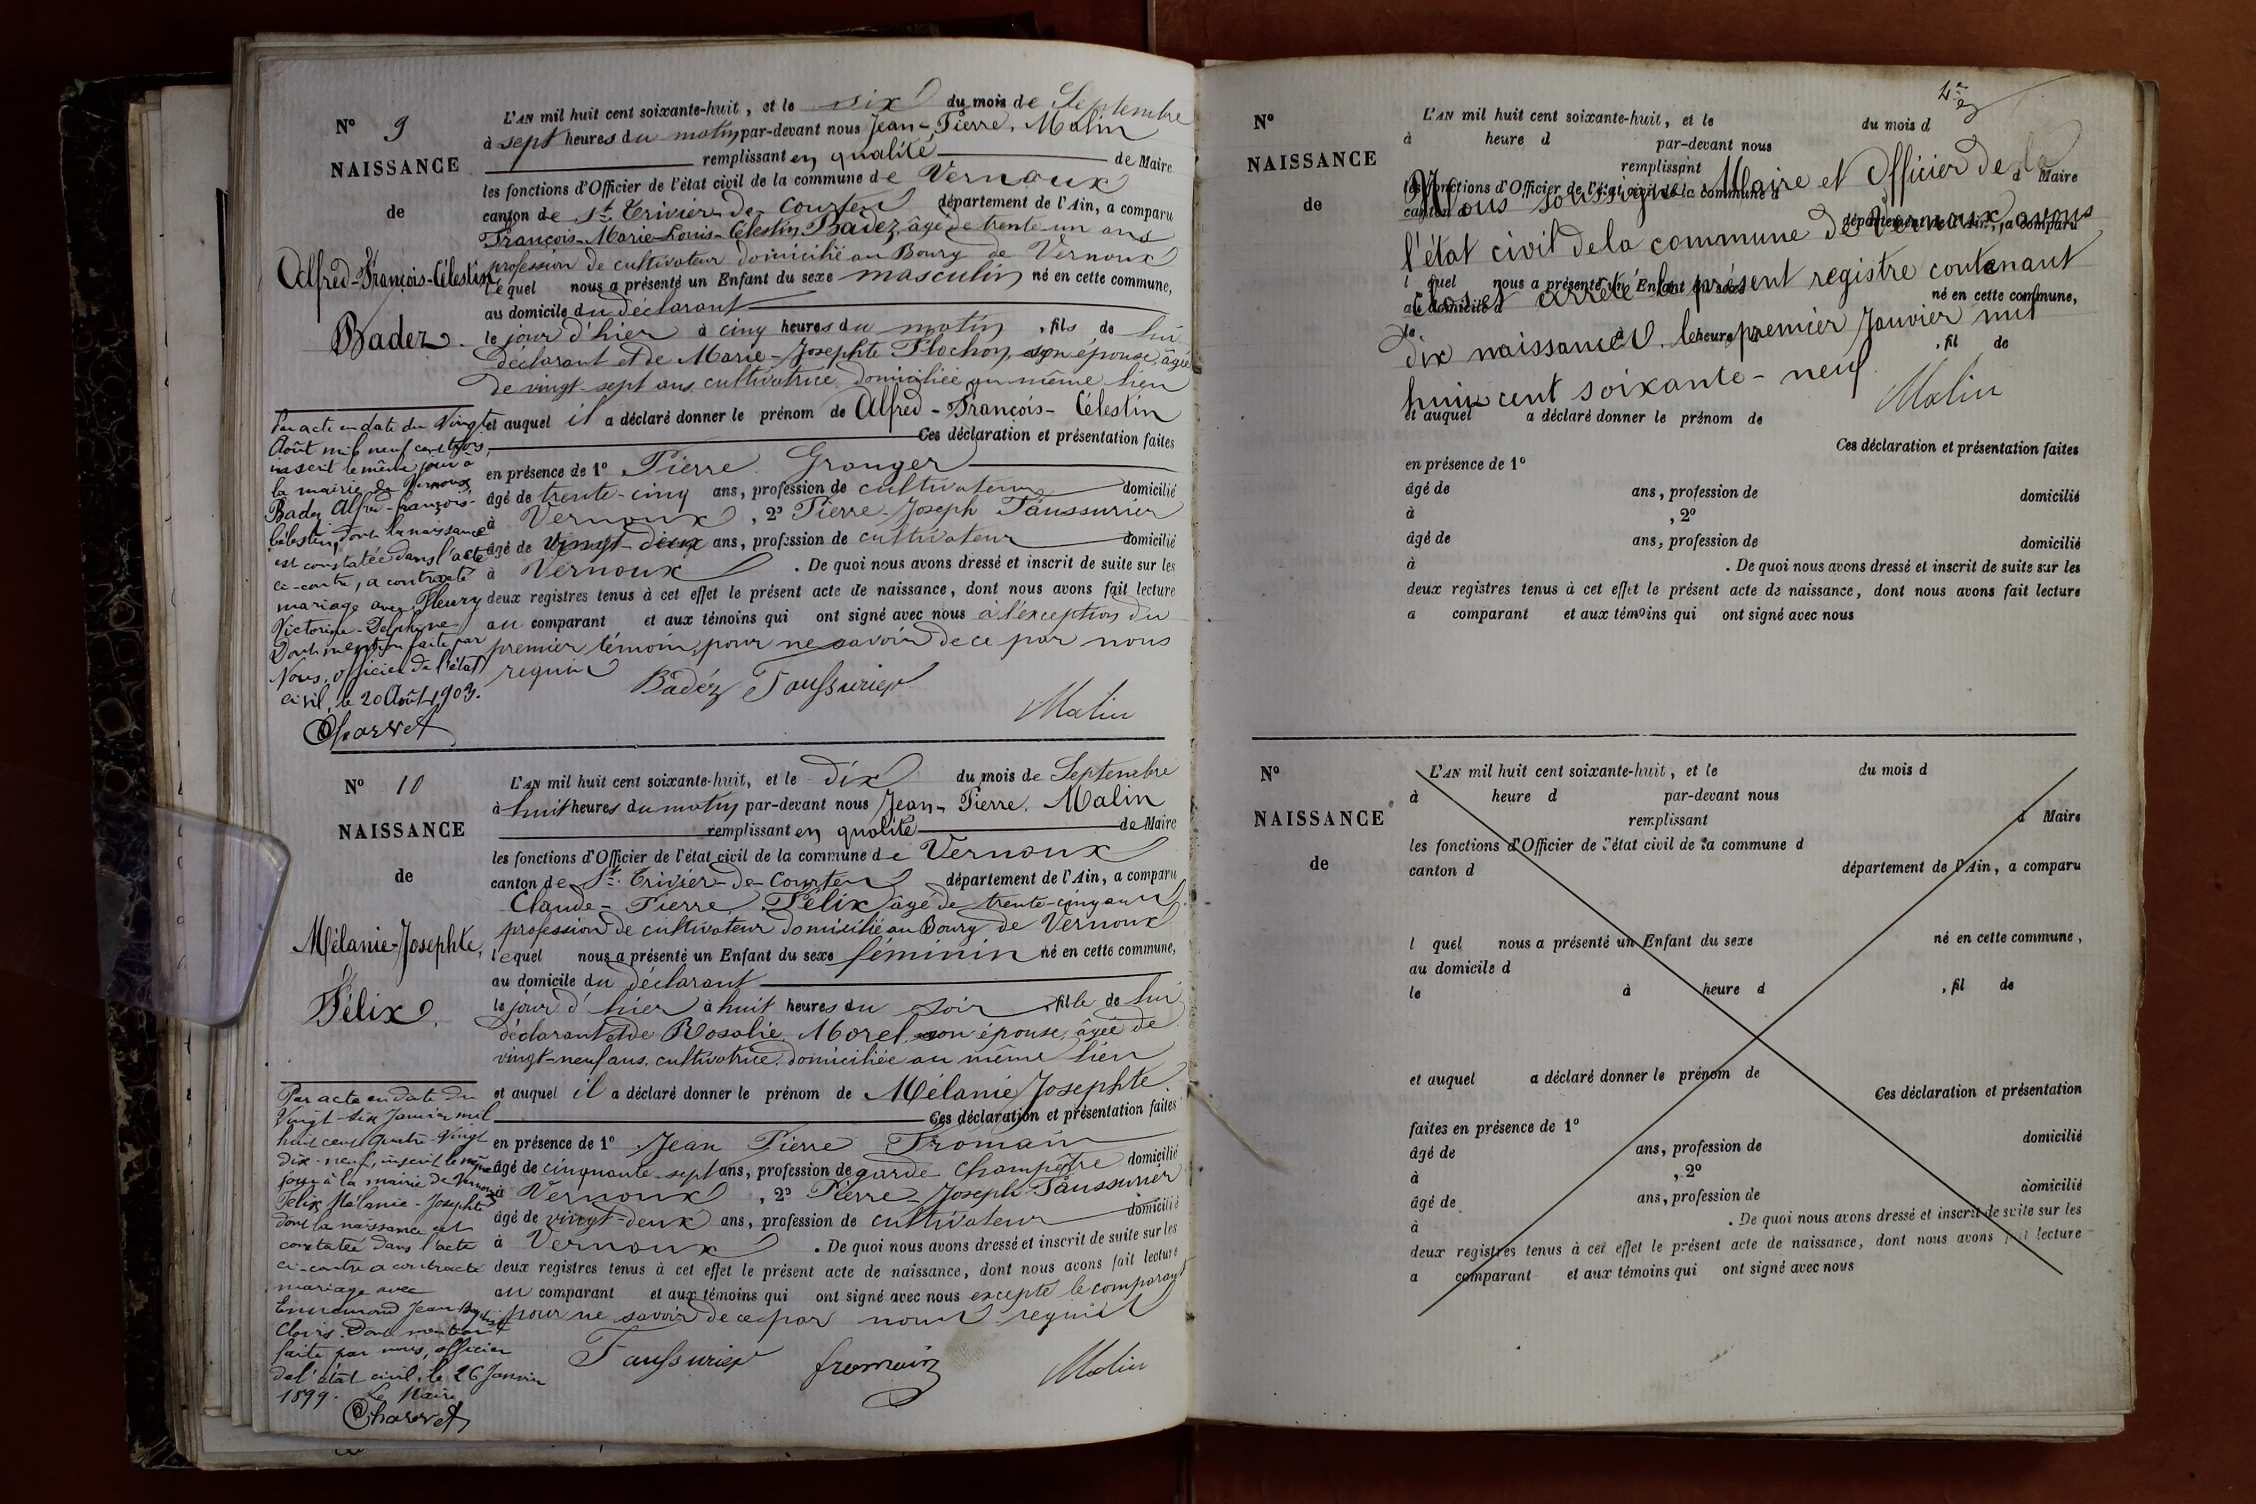 N° 9
NAISSANCE
de
Alfred-François-Célestin
Badez.
L'AN mil huit cent soixante-huit, et le six du mois de Septembre
à sept heures du matin par-devant nous Jean-Pierre, Malin
remplissant en qualité de Maire
les fonctions d'Officier de l'état civil de la commune de Vernoux
canton de St. Trivier-de-Courtes département de l'Ain, a comparu
François-Marie-Louis-Célestin Badez, âgé de trente-un ans
profession de cultivateur domicilié au Bourg de Vernoux
lequel nous a présenté un Enfant du sexe masculin né en cette commune,
au domicile du déclarant
le jour d'hier à cinq heures du matin, fils de lui
déclarant et de Marie-Josephte Plochon son épouse, âgée
de vingt-sept ans cultivatrice domiciliée au même lieu
et auquel il a déclaré donner le prénom de Alfred-François-Célestin
Ces déclaration et présentation faites
en présence de 1° Pierre Granger
âgé de trente-cinq ans, profession de cultivateur domicilié
à Vernoux, 2° Pierre-Joseph Taussurier
âgé de vingt-deux ans, profession de cultivateur domicilié
à Vernoux. De quoi nous avons dressé et inscrit de suite sur les
deux registres tenus à cet effet le présent acte de naissance, dont nous avons fait lecture
au comparant et aux témoins qui ont signé avec nous à l'exception du
premier témoin, pour ne savoir de ce par nous
requis
Badéz Taussurier
Malin
Par acte en date du Vingt
Août mil neuf cent trois,
inscrit le même jour à
la mairie de Vernoux
Badez Alfred-françois-
Célestin, dont la naissance
est constatée dans l'acte
ci-contre, a contracté
mariage avec Fleury
Victorine-Delphine
Dont mention faite par
Nous, officier de l'état
civil, le 20 Août 1903.
Charvet
N° 10
NAISSANCE
de
Mélanie-Josephte,
Félix.
L'AN mil huit cent soixante-huit, et le dix du mois de Septembre
à huit heures du matin par-devant nous Jean-Pierre, Malin
remplissant en qualité de Maire
les fonctions d'Officier de l'état civil de la commune de Vernoux
canton de St. Trivier-de-Courtes département de l'Ain, a comparu
Claude-Pierre Félix âgé de trente-cinq ans
profession de cultivateur domicilié au Bourg de Vernoux
lequel nous a présenté un Enfant du sexe féminin né en cette commune,
au domicile du déclarant
le jour d'hier à huit heures du soir, fille de lui
déclarant et de Rosalie Morel son épouse, âgée de
vingt-neuf ans, cultivatrice domiciliée au même lieu
et auquel il a déclaré donner le prénom de Mélanie Josephte.
Ces déclaration et présentation faites
en présence de 1° Jean Pierre Fromain
âgé de cinquante-sept ans, profession de garde champêtre domicilié
à Vernoux, 2° Pierre-Joseph Taussurier
âgé de vingt-deux ans, profession de cultivateur domicilié
à Vernoux. De quoi nous avons dressé et inscrit de suite sur les
deux registres tenus à cet effet le présent acte de naissance, dont nous avons fait lecture
au comparant et aux témoins qui ont signé avec nous excepté le comparant
pour ne savoir de ce par nous requis
Taussurier fromain Malin
Par acte en date du
Vingt-six Janvier mil
huit cent quatre-vingt
dix-neuf, inscrit le même
jour à la mairie de Vernoux
Félix Mélanie-Josephte
dont la naissance est
constatée dans l'acte
ci-contre a contracté
mariage avec
Jean
Clovis. Dont mention
faite par nous, officier
de l'état civil, le 26 Janvier
1899. Le Maire
Charvet
N°
NAISSANCE
de
L'AN mil huit cent soixante-huit, et le du mois d
à heure d par-devant nous
remplissant d Maire
les fonctions d'Officier de l'état civil de la commune d
canton d département de l'Ain, a comparu
l quel nous a présenté un Enfant du sexe né en cette commune,
au domicile d
le à heure d, fil de
Nous soussigné Maire et Officier de la
l'état civil de la commune de Vernoux avons
clos et arrêté le présent registre contenant
dix naissances. le premier Janvier mil
huit cent soixante-neuf
Malin
et auquel a déclaré donner le prénom de
Ces déclaration et présentation faites
en présence de 1°
âgé de ans, profession de domicilié
à , 2°
âgé de ans, profession de domicilié
à . De quoi nous avons dressé et inscrit de suite sur les
deux registres tenus à cet effet le présent acte de naissance, dont nous avons fait lecture
a comparant et aux témoins qui ont signé avec nous
N°
NAISSANCE
de
L'AN mil huit cent soixante-huit, et le du mois d
à heure d par-devant nous
remplissant d Maire
les fonctions d'Officier de l'état civil de la commune d
canton d département de l'Ain, a comparu
l quel nous a présenté un Enfant du sexe né en cette commune,
au domicile d
le à heure d , fil de
et auquel a déclaré donner le prénom de
Ces déclaration et présentation
faites en présence de 1°
âgé de ans, profession de domicilié
à , 2°
âgé de ans, profession de domicilié
à . De quoi nous avons dressé et inscrit de suite sur les
deux registres tenus à cet effet le présent acte de naissance, dont nous avons fait lecture
a comparant et aux témoins qui ont signé avec nous